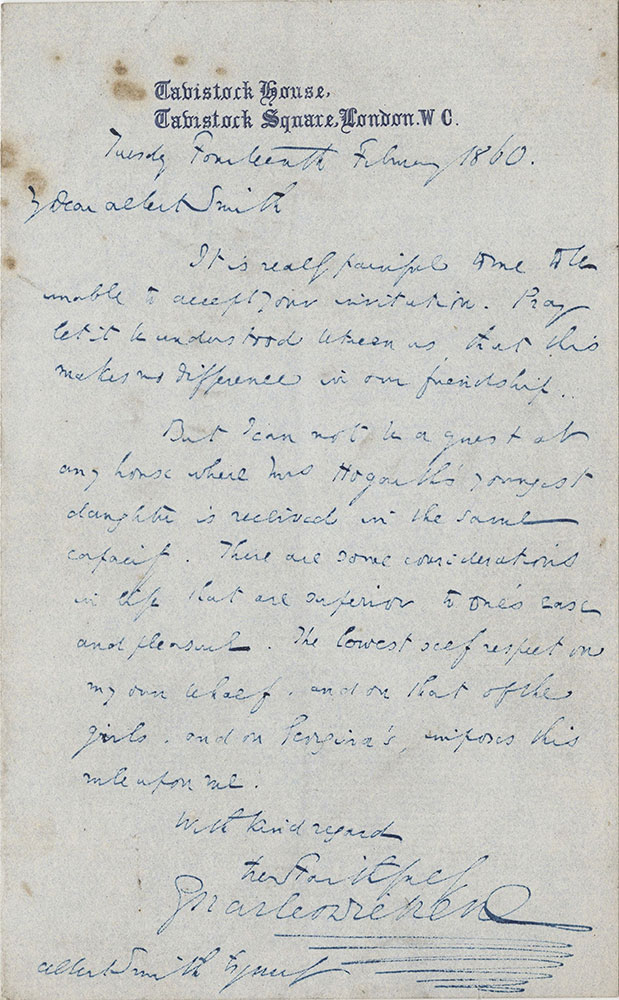 Tavistock House,
Tavistock Square, London. W C.
Tuesday Fourteenth February 1860.
My Dear Albert Smith
It is really painful to me to be
unable to accept your invitation. Pray
let it be understood between us that this
makes no difference in our friendship.
But I can not be a guest at
any house where Mrs Hogarth's youngest
daughter is received in the same
capacity. There are some considerations
in life that are superior to one's ease
and pleasure. The lowest self respect on
my own behalf, and on that of the
girls, and on Georgina's, imposes this
rule upon me.
With kind regard
Ever Faithfully
Charles Dickens
Albert Smith Esquire